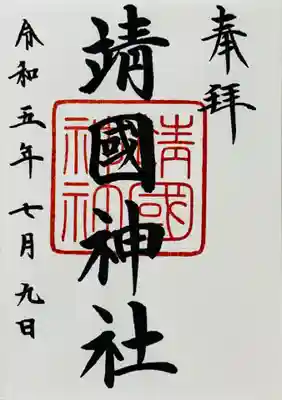 奉拝
靖國神社
靖國神社
令和五年七月九日